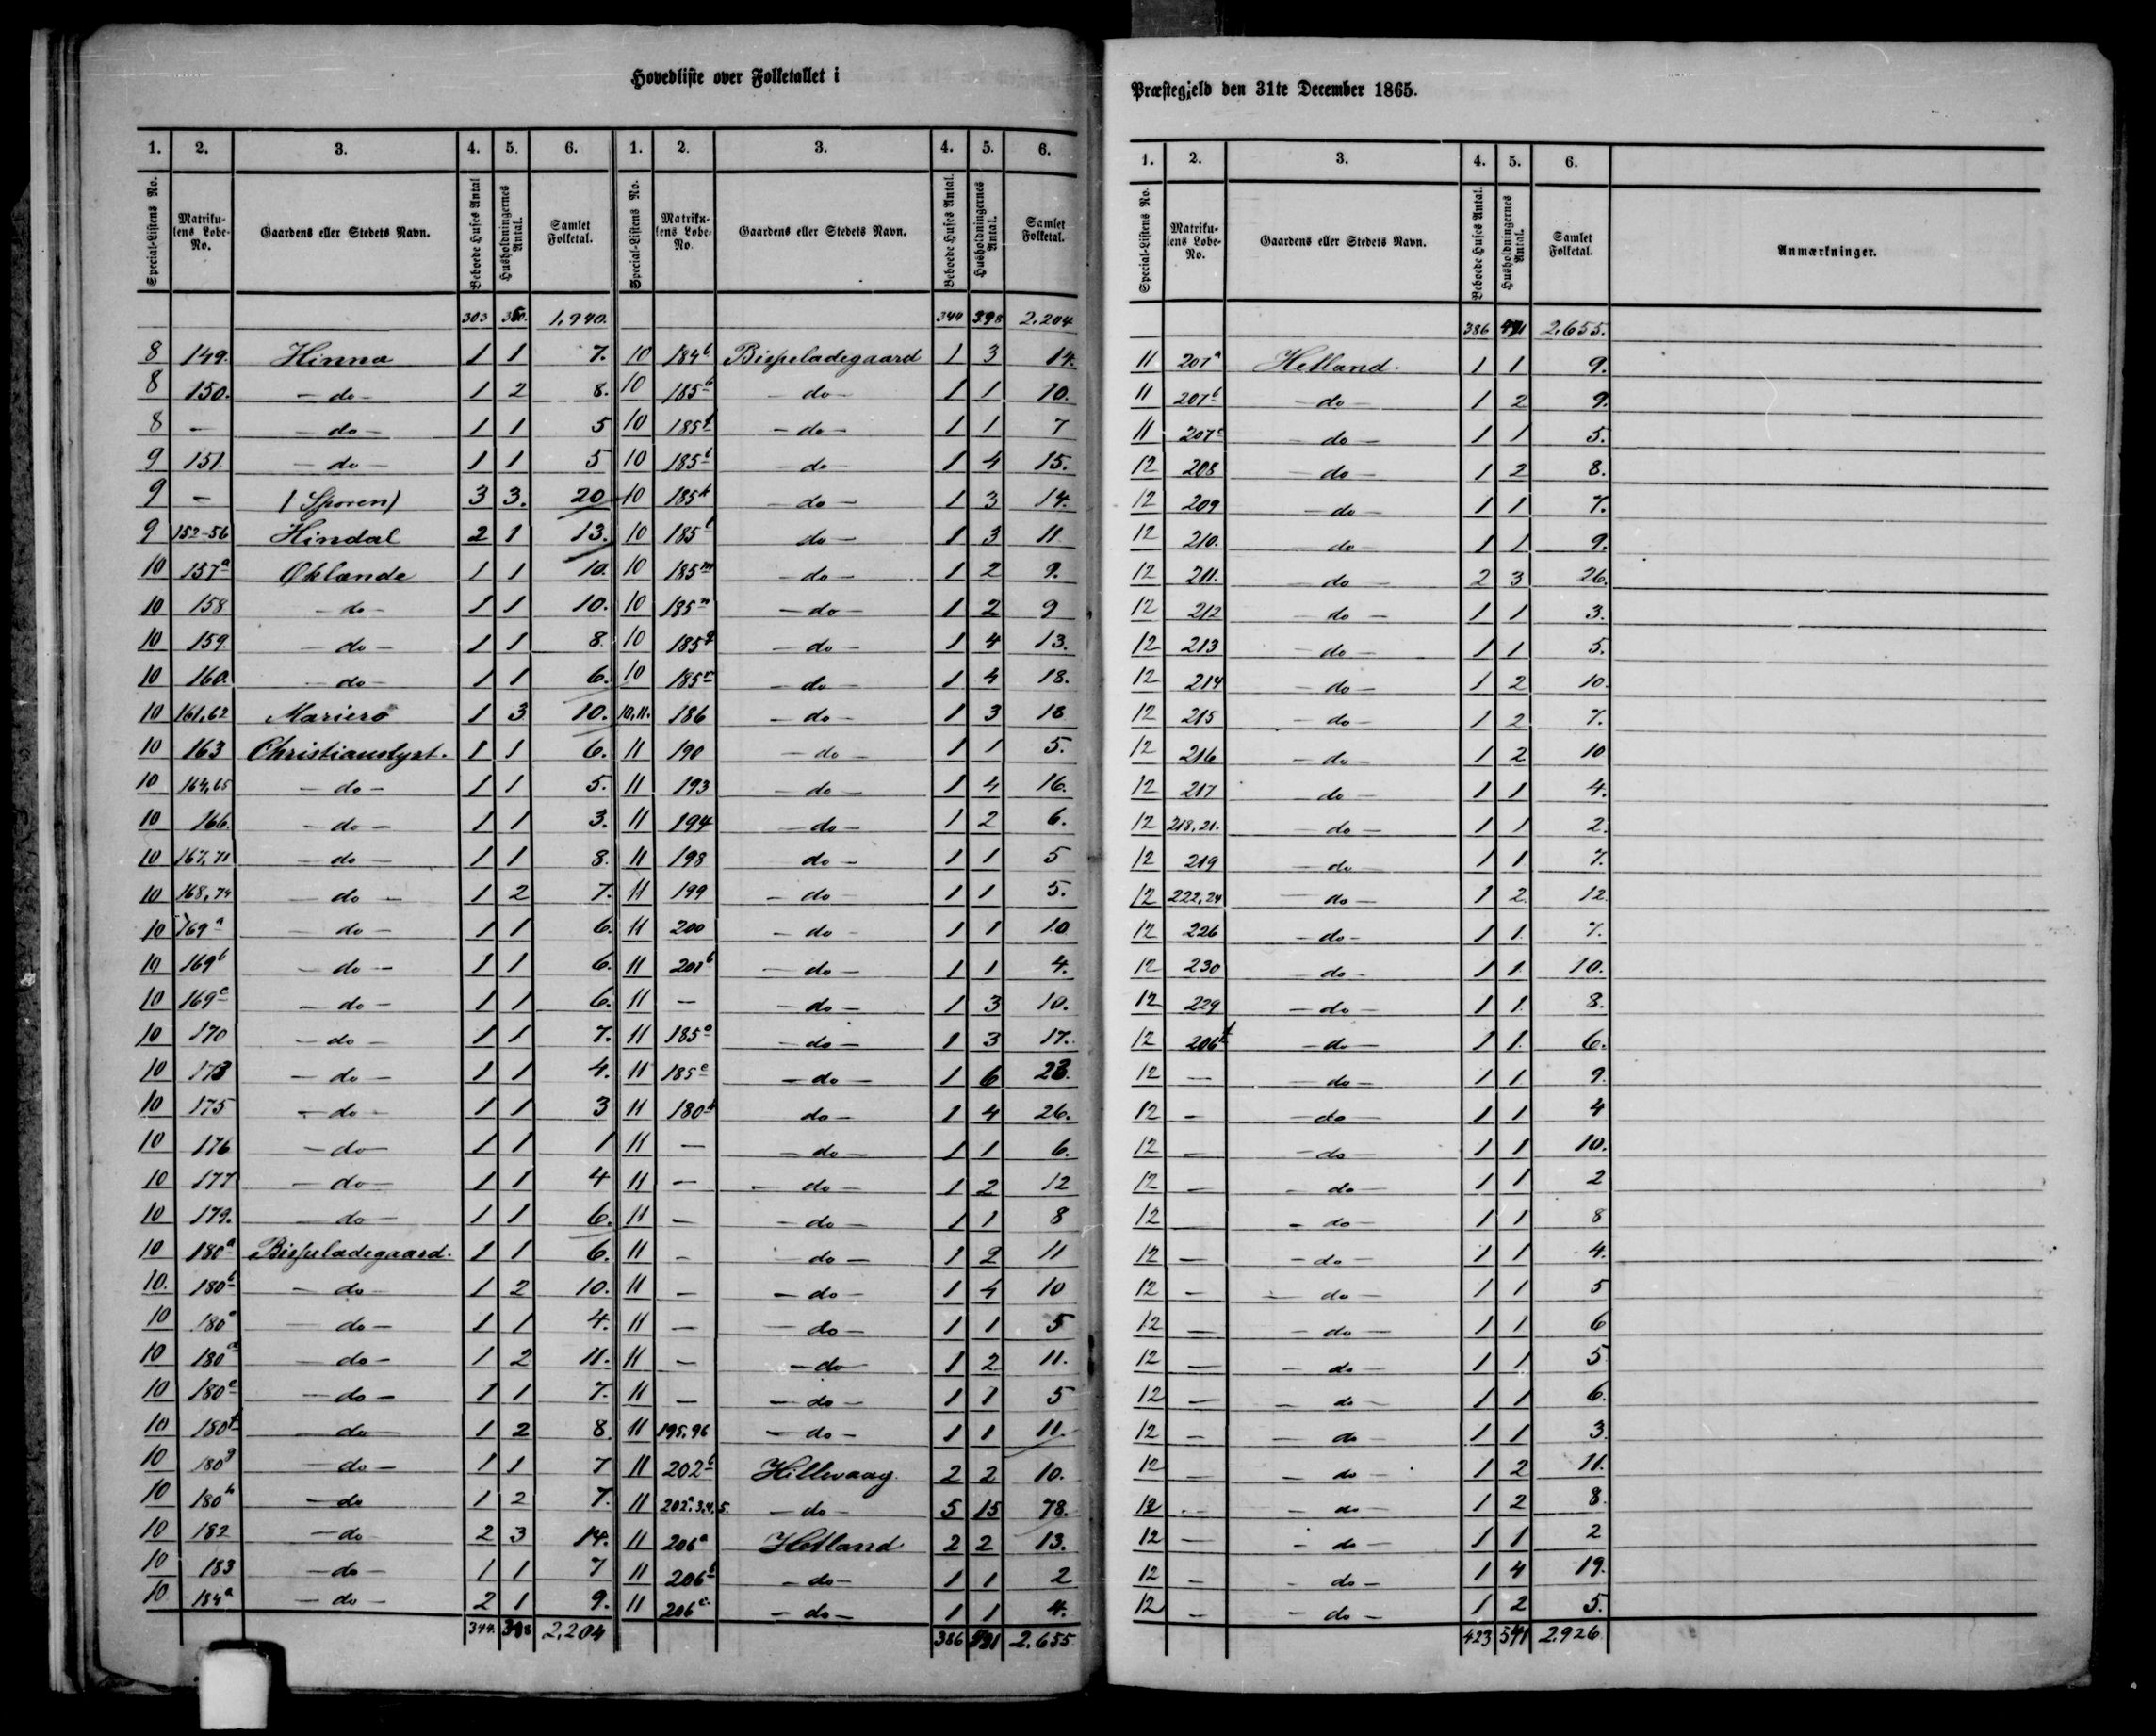 Hovedliste over Folketallet i
1. 2. 3. 4. 5. 6. 1. 2. 3. 4. 5. 6.
Special-Listens No. Matrikulens Løbe-No. Gaardens eller Stedets Navn. Beboede Huses Antal Husholdningernes Antal. Samlet Folketal. Special-Listens No. Matrikulens Løbe-No. Gaardens eller Stedets Navn. Beboede Huses Antal. Husholdningernes Antal. Samlet Folketal.
303 1,940. 344 398 2,204
8 149. Hinna 1 1 7. 10 184b Bispeladegaard 1 3 14.
8 150. - do - 1 2 8. 10 185b - do - 1 1 10.
8 - - do - 1 1 5 10 185f - do - 1 1 7
9 151. - do - 1 1 5 10 185i - do - 1 4 15.
9 - (Sporen) 3 3. 20 10 185k - do - 1 3 14.
9 152-56 Hindal 2 1 13. 10 185l do - 1 3 11
10 157a Øklande 1 1 10. 10 185m - do - 1 2 9.
10 158 - do - 1 1 10. 10 185n - do - 1 2 9
10 159. - do - 1 1 8. 10 185q - do - 1 4 13.
10 160. - do - 1 1 6. 10 185r - do - 1 4 18.
10 161,62 Mariero 1 3 10. 10,11. 186 - do - 1 3 18
10 163 Christianslyst. 1 1 6. 11 190 - do - 1 1 5.
10 164,65 - do - 1 1 5. 11 193 - do - 1 4 16.
10 166. - do - 1 1 3. 11 194 - do - 1 2 6.
10 167,71 - do - 1 1 8. 11 198 do - 1 1 5
10 168,74 - do - 1 2 7. 11 199 - do - 1 1 5.
10 169a - do - 1 1 6. 11 200 - do - 1 1 10
10 169b - do - 1 1 6. 11 201b - do - 1 1 4.
10 169c - do - 1 1 6. 11 - - do - 1 3 10.
10 170 - do - 1 1 7. 11 185o - do - 1 3 17.
10 173 - do - 1 1 4. 11 185c - do - 1 6 23.
10 175 - do - 1 1 3 11 180k do - 1 4 26.
10 176 - do - 1 1 1 11 - - do - 1 1 6.
10 177 - do - 1 1 4 11 - - do - 1 2 12
10 179. - do - 1 1 6. 11 - - do - 1 1 8
10 180a Bispeladegaard. 1 1 6. 11 - - do - 1 2 11
10. 180b - do - 1 2 10. 11 - - do - 1 4 10
10 180c - do - 1 1 4. 11 - - do - 1 1 5
10 180d - do - 1 2 11. 11 - - do 1 2 11.
10 180e - do - 1 1 7. 11 - - do - 1 1 5
10 180f - do - 1 2 8. 11 195.96 - do - 1 1 11.
10 180g - do - 1 1 7 11 202b Hillevaag. 2 2 10.
10 180h - do 1 2 7. 11 202a.3.4.5. - do - 5 15 78.
10 182 - do 2 3 14. 11 206a Hetland 2 2 13.
10 183 - do - 1 1 7 11 206b - do - 1 1 2
10 184a - do - 2 1 9. 11 206c. - do - 1 1 4.
344. 398 2,204 386 491 2,655
Præstegjeld den 31te December 1865.
1. 2. 3. 4. 5. 6.
Special-Listens No. Matrikulens Løbe-No. Gaardens eller Stedets Navn. Beboede Huses Antal. Husholdningernes Antal. Samlet Folketal. Anmærkninger.
386 491 2,655.
11 207a Hetland. 1 1 9.
11 207b - do - 1 2 9.
11 207c - do - 1 1 5.
12 208 - do - 1 2 8.
12 209 - do - 1 1 7.
12 210. - do - 1 1 9.
12 211. - do - 2 3 26.
12 212 - do - 1 1 3.
12 213 - do - 1 1 5.
12 214 - do - 1 2 10.
12 215 - do - 1 2 7.
12 216 - do - 1 2 10
12 217 - do - 1 1 4.
12 218,21. - do - 1 1 2.
12 219 - do - 1 1 7.
12 222,24 - do - 1 2 12.
12 226 - do - 1 1 7.
12 230 - do - 1 1 10.
12 229 - do - 1 1 8.
12 206d - do - 1 1 6.
12 - - do - 1 1 9.
12 - - do - 1 1 4
12 - - do - 1 1 10.
12 - - do - 1 1 2
12 - do - 1 1 8
12 - - do - 1 1 4.
12 - - do - 1 1 5
12 - - do - 1 1 6
12 - - do - 1 1 5
12 - - do - 1 1 6.
12 - - do 1 1 3.
12 - - do - 1 2 11.
12 - - do - 1 2 8.
12 - - do - 1 1 2
12 - - do - 1 4 19.
12 - - do - 1 2 5.
423 541 2,926.